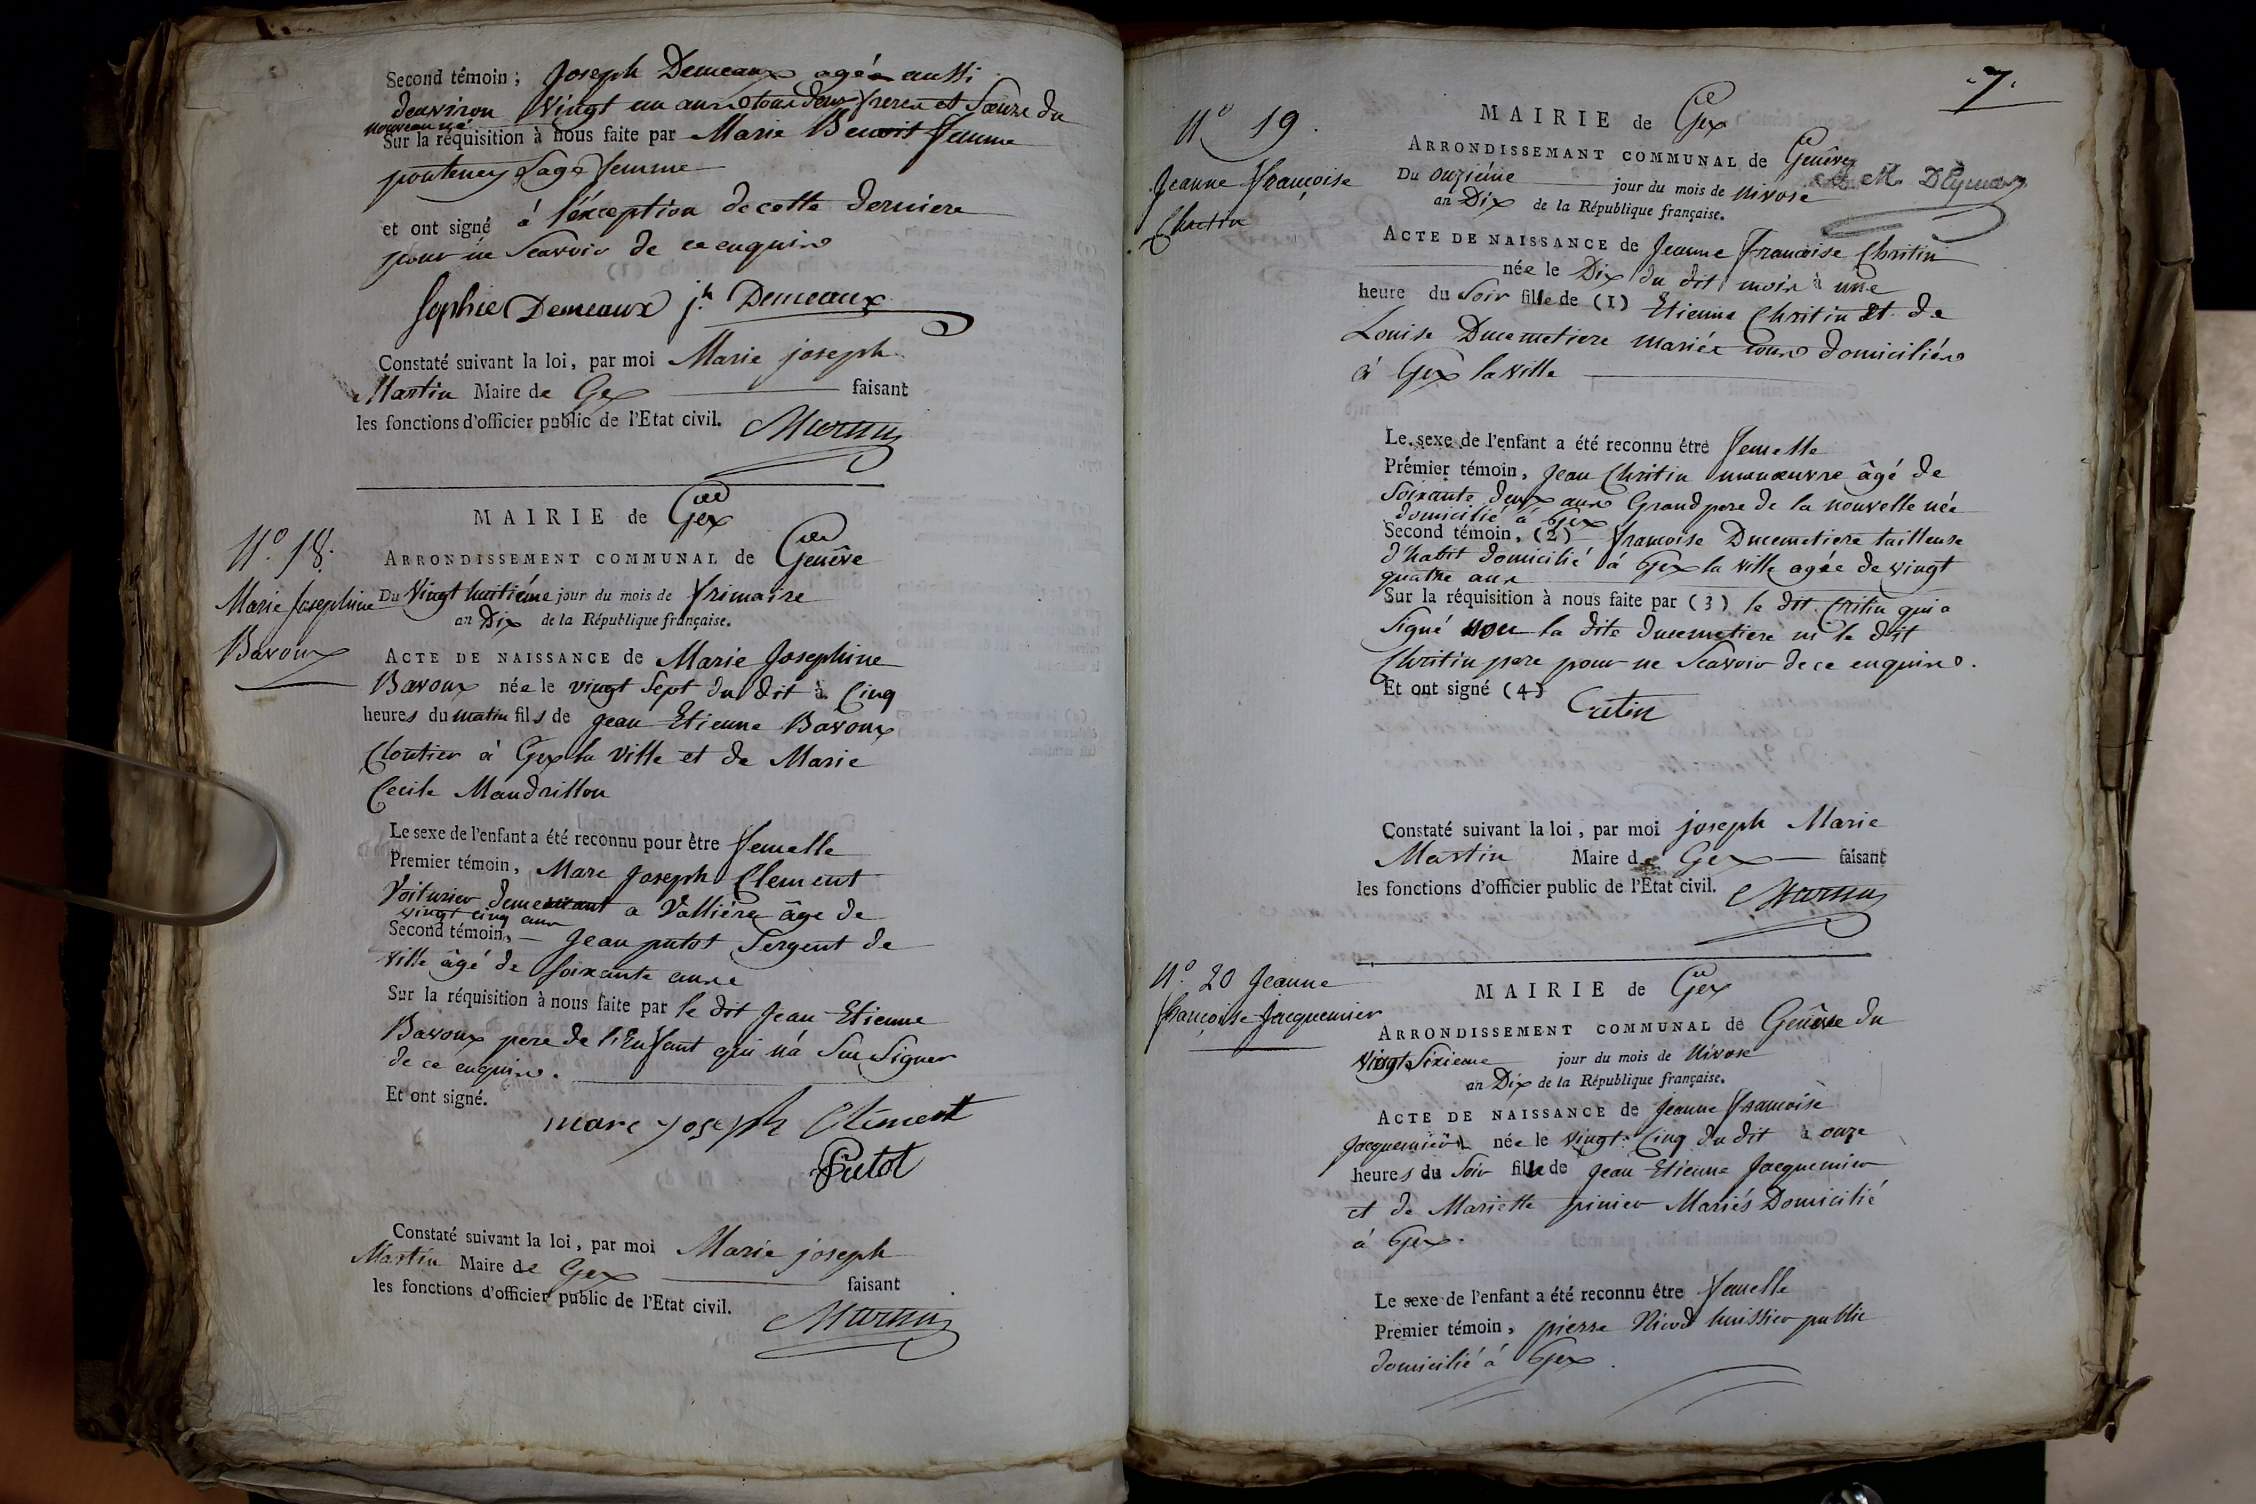 Second témoin; Joseph Demeaux agé aussi
denviron vingt un ans tous deux freres et Sœurs du
nouveau né
Sur la réquisition à nous faite par Marie Benoit femme
ponteney Sage femme
et ont signé à l'éxception de cette derniere
pour ne Scavoir de ce enquis
Sophie Demeaux j.h Demeaux
Constaté suivant la loi, par moi Marie joseph
Martin Maire de Gex faisant
les fonctions d'officier public de l'Etat civil. Martin
N.o 18.
Marie Josephine
Bavoux
MAIRIE de Gex
ARRONDISSEMENT COMMUNAL de Genêve
Du Vingt huitiéme jour du mois de frimaire
an Dix de la République française.
ACTE DE NAISSANCE de Marie Josephine
Bavoux née le vingt Sept du dit à Cinq
heures du matin fils de Jean Etienne Bavoux
Cloutier à Gex la ville et de Marie
Cecile Mandrillon
Le sexe de l'enfant a été reconnu pour être femelle
Premier témoin, Marc Joseph Clement
Voiturier demeurant a Valliére âge de
vingt cinq ans
Second témoin, Jean putot Sergent de
ville âgé de soixante ans
Sur la réquisition à nous faite par le dit Jean Etienne
Bavoux pere de l'Enfant qui n'a Su Signer
de ce enquis.
Et ont signé.
marc joseph Clément
Putot
Constaté suivant la loi, par moi Marie joseph
Martin Maire de Gex faisant
les fonctions d'officier public de l'Etat civil. Martin
7.
N.o 19.
Jeanne françoise
Chritin
MAIRIE de Gex
ARRONDISSEMANT COMMUNAL de Genêve
Du onziéme jour du mois de nivose
an Dix de la République française.
ACTE DE NAISSANCE de Jeanne francoise Chritin
née le Dix du dit mois à une
heure du Soir fille de (1) Etienne Chritin et de
Louise Ducemetiere mariés domiciliés
à Gex la ville
Le sexe de l'enfant a été reconnu être femelle
Prémier témoin, Jean Chritin manœuvre âgé de
Soixante deux ans Grand pere de la nouvelle née
domicilié à Gex
Second témoin, (2) francoise Ducemetiere tailleuse
d'habit domicilié à Gex la ville agée de vingt
quatre ans
Sur la réquisition à nous faite par (3) le dit Critin qui a
Signé non la dite ducemetiere ni le dit
Chritin pere pour ne Scavoir de ce enquis.
Et ont signé (4)
Critin
Constaté suivant la loi, par moi joseph Marie
Martin Maire de Gex faisant
les fonctions d'officier public de l'Etat civil. Martin
N.o 20 Jeanne
françoise Jacquemier
MAIRIE de Gex
ARRONDISSEMENT COMMUNAL de Genêve du
vingt Sixieme jour du mois de Nivose
an Dix de la République française.
ACTE DE NAISSANCE de Jeanne francoise
Jacquemier née le vingt Cinq du dit à onze
heures du Soir fille de Jean Etienne Jacquemier
et de Mariette pinier Mariés Domicilié
à Gex.
Le sexe de l'enfant a été reconnu être femelle
Premier témoin, pierre Nicod huissier public
domicilié à Gex.